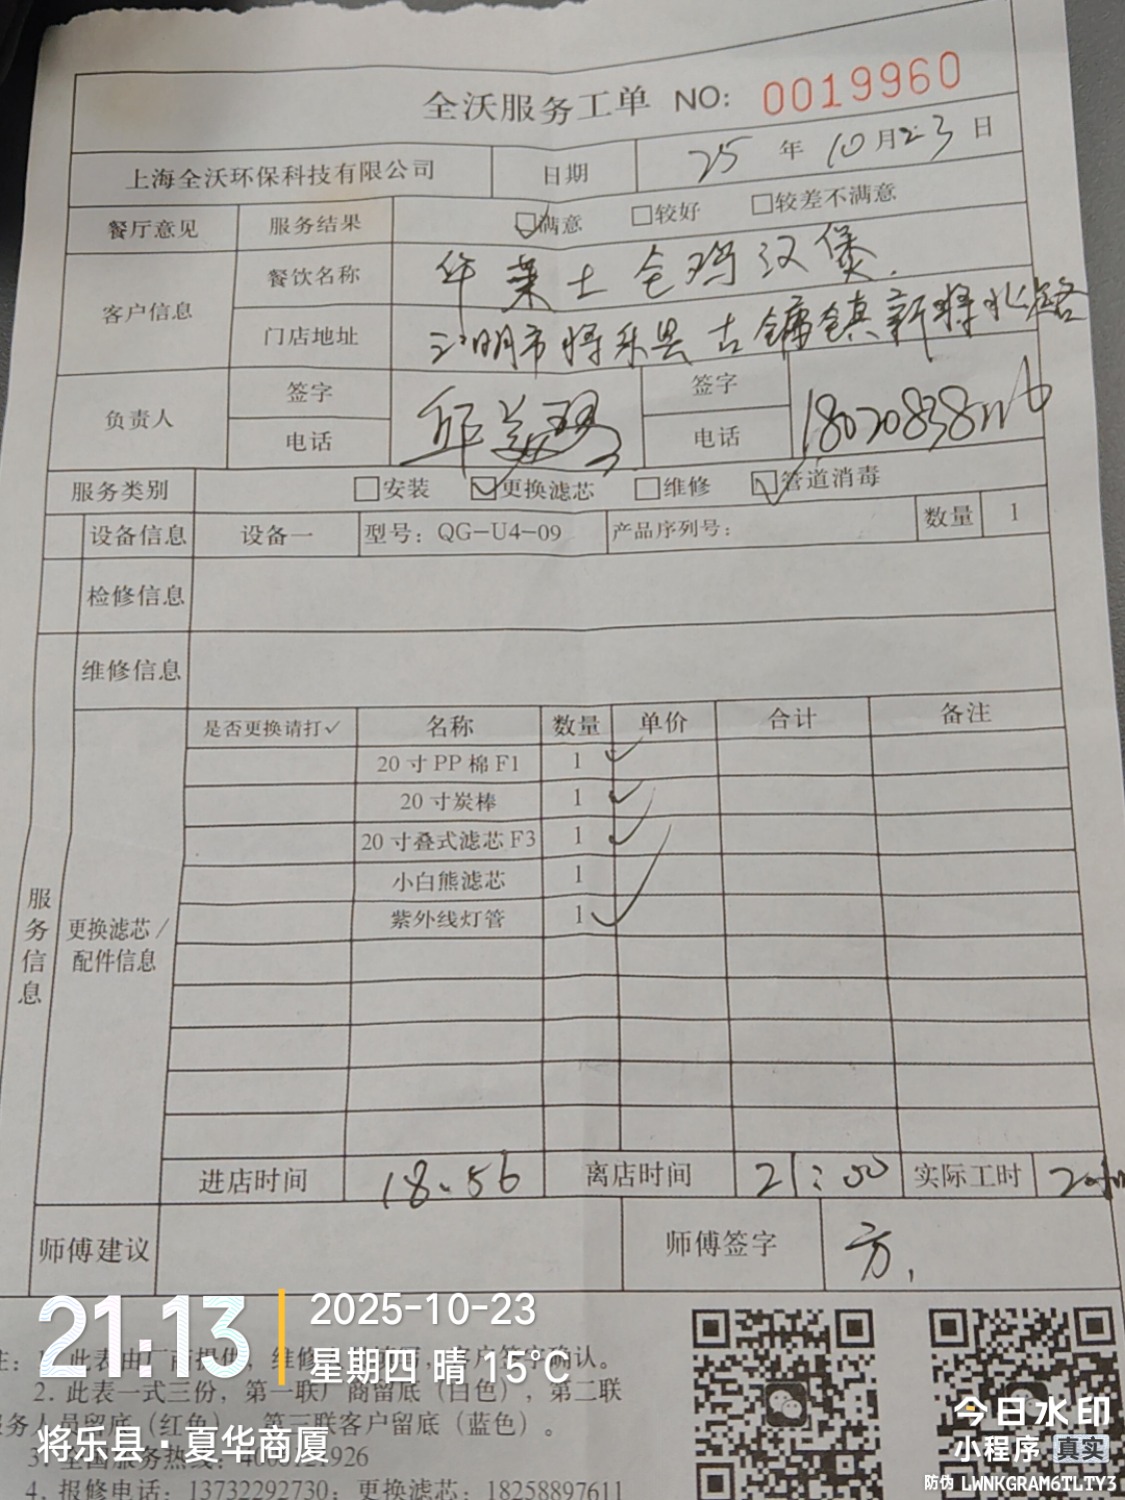 全沃服务工单 NO: 0019960
上海全沃环保科技有限公司 日期 25 年 10 月 23 日
餐厅意见 服务结果 ☑满意 □较好 □较差不满意
客户信息 餐饮名称 华莱士全鸡汉煲.
门店地址 三明市将乐县古镛镇新将北路
负责人 签字 邱 签字
电话 电话 18020838
服务类别 □安装 ☑更换滤芯 □维修 ☑管道消毒
设备信息 设备一 型号: QG-U4-09 产品序列号: 数量 1
检修信息
维修信息
服务信息 更换滤芯/配件信息
是否更换请打✓ 名称 数量 单价 合计 备注
20寸PP棉F1 1 ✓
20寸炭棒 1 ✓
20寸叠式滤芯F3 1 ✓
小白熊滤芯 1
紫外线灯管 1 ✓
进店时间 18.56 离店时间 21:00 实际工时
师傅建议 师傅签字 方.
21:13 2025-10-23
星期四 晴 15°C
此表由厂商提供
2. 此表一式三份,第一联厂商留底(白色),第二联
服务人员留底(红色),第三联客户留底(蓝色)。
将乐县·夏华商厦
3. 全国服务热线:
4. 报修电话: 13732292730; 更换滤芯: 18258897611
今日水印
小程序 真实
防伪 LWNKGRAM6TLTY3